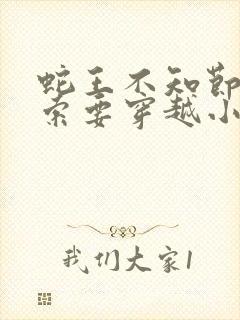 蛇王不知节
索要穿越小
我们大家1